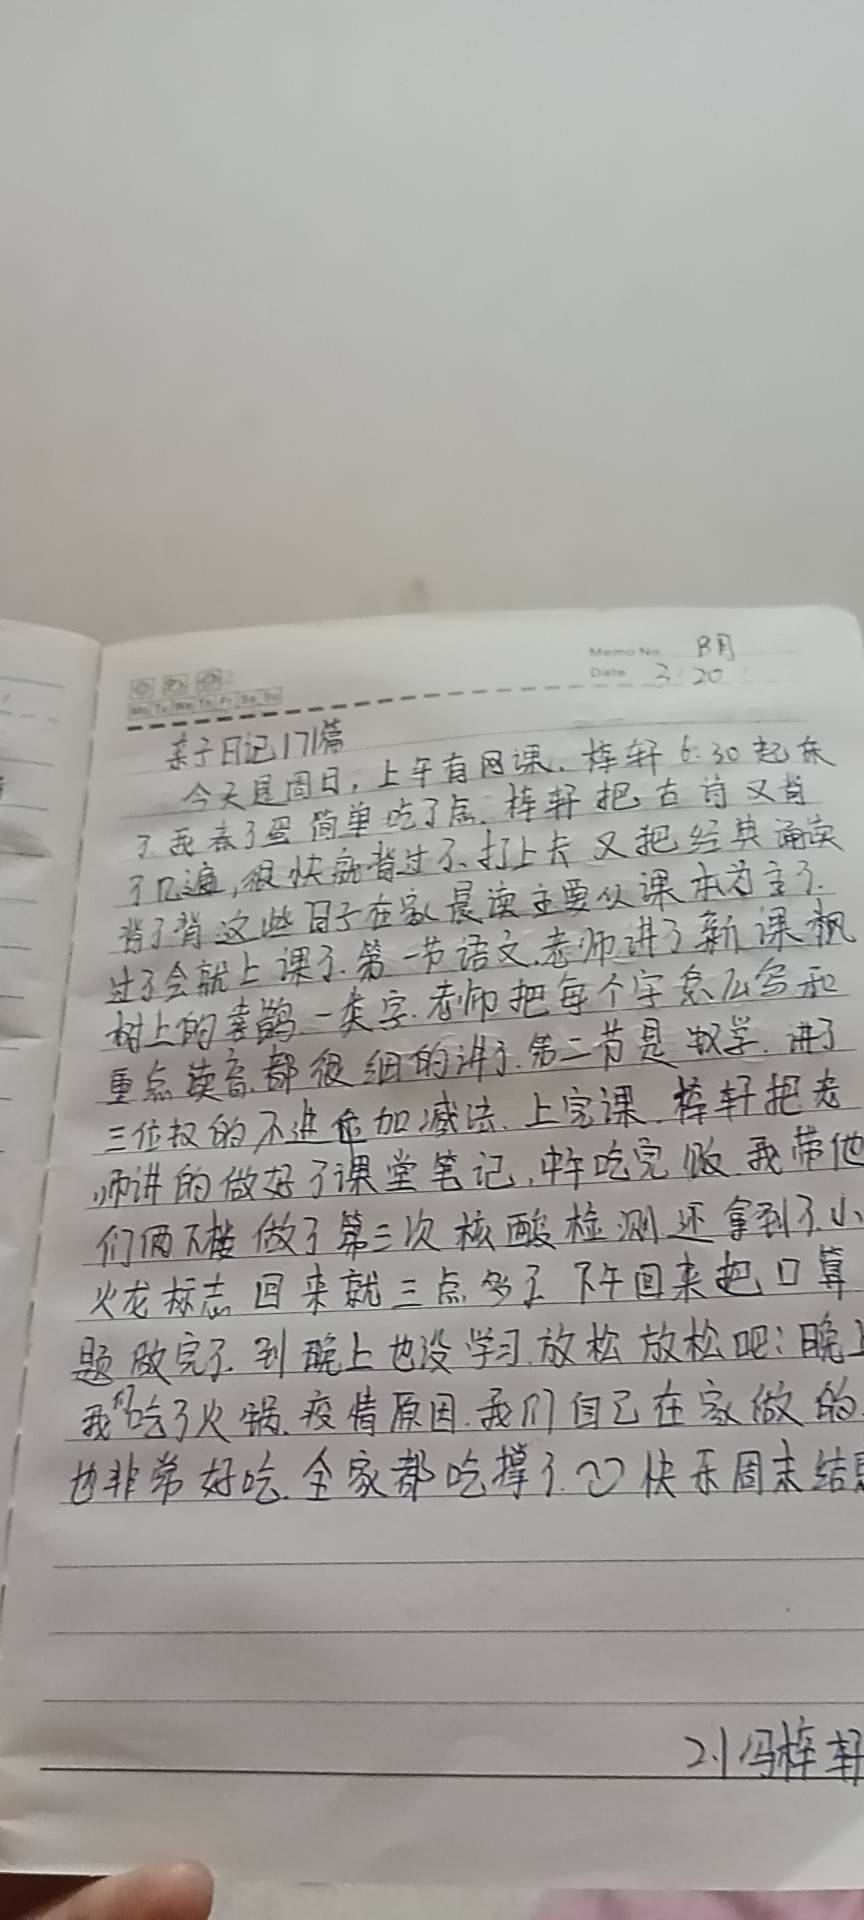 Memo No. 阴
Mo Tu We Th Fr Sa Su
Date 3 / 20 /
亲子日记171篇
今天是周日，上午有网课。梓轩6:30起床
了我煮了蛋简单吃了点。梓轩把古诗又背
了几遍，很快就背过了。打上卡又把经典诵读
背了背这些日子在家晨读主要以课本为主了.
过了会就上课了.第一节语文.老师讲了新课枫
树上的喜鹊一类字.老师把每个字怎么写和
重点读音都很细的讲了.第二节是数学.讲了
三位数的不进位加减法.上完课.梓轩把老
师讲的做好了课堂笔记,中午吃完饭.我带他
们俩下楼做了第三次核酸检测还拿到了.小
火龙标志回来就三点多了下午回来把口算
题做完了.到晚上也没学习.放松放松吧!晚上
我们吃了火锅.疫情原因.我们自己在家做的
也非常好吃.全家都吃撑了.快乐周末结束
2.1冯梓轩